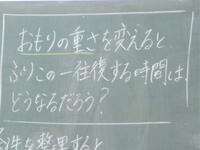 おもりの重さを変えると
ふりこの一往復する時間は、
どうなるだろう?
条件を整理すると